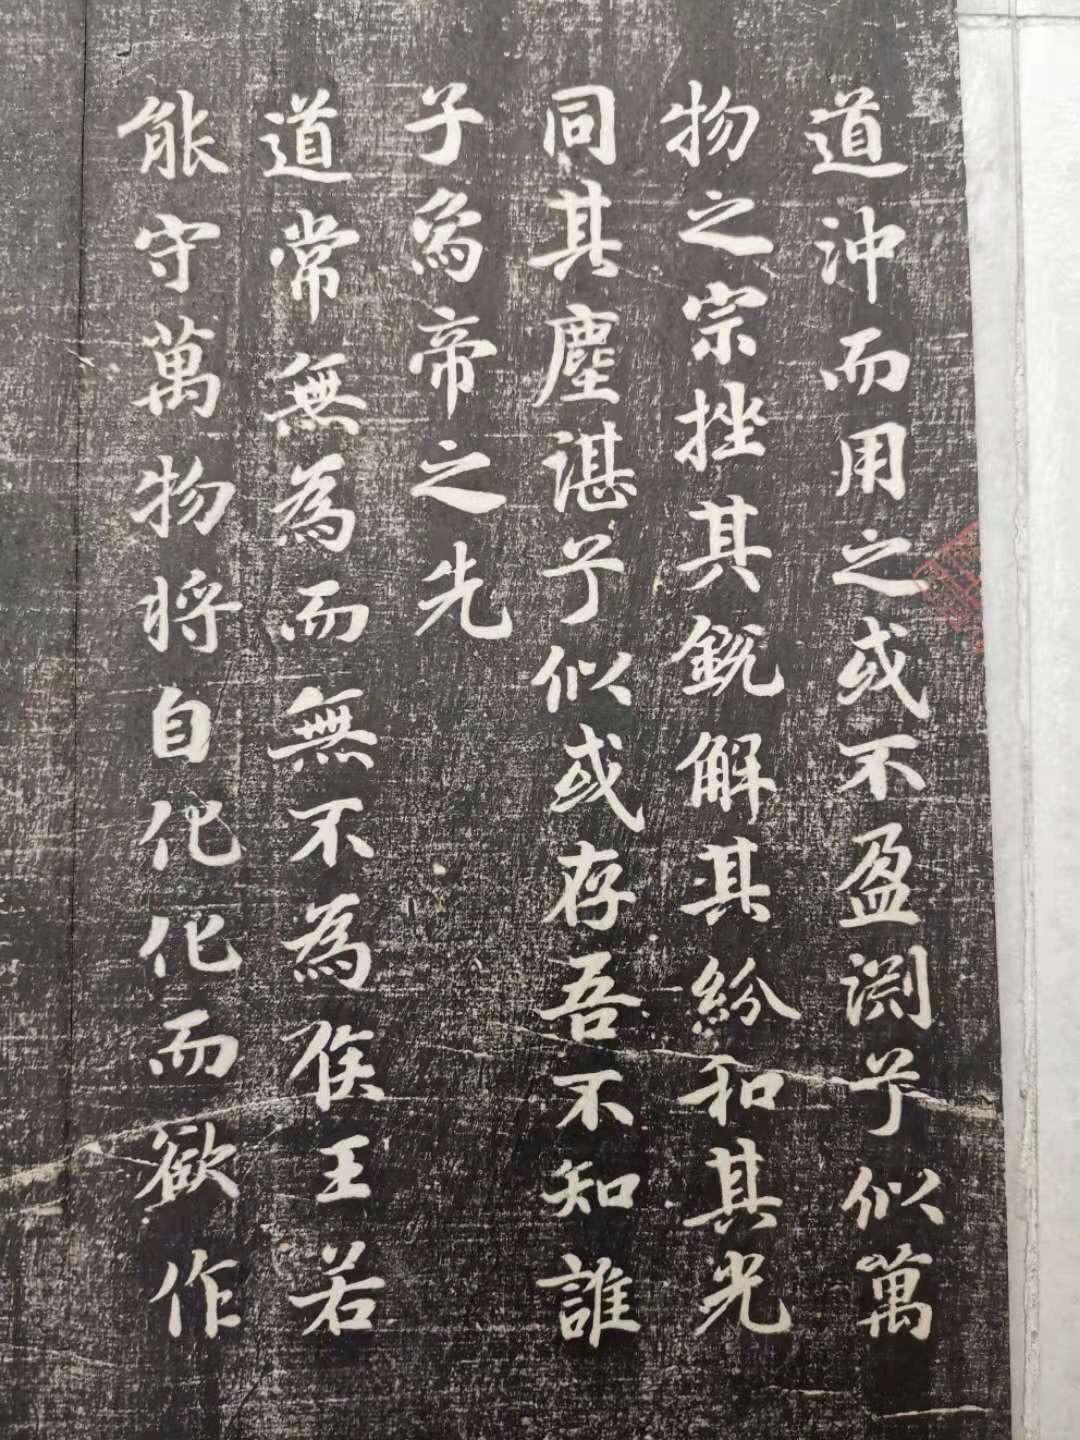 道沖而用之或不盈渊乎似萬
物之宗挫其銳解其紛和其光
同其塵湛乎似或存吾不知誰
子為帝之先
道常無為而無不為侯王若
能守萬物将自化化而欲作